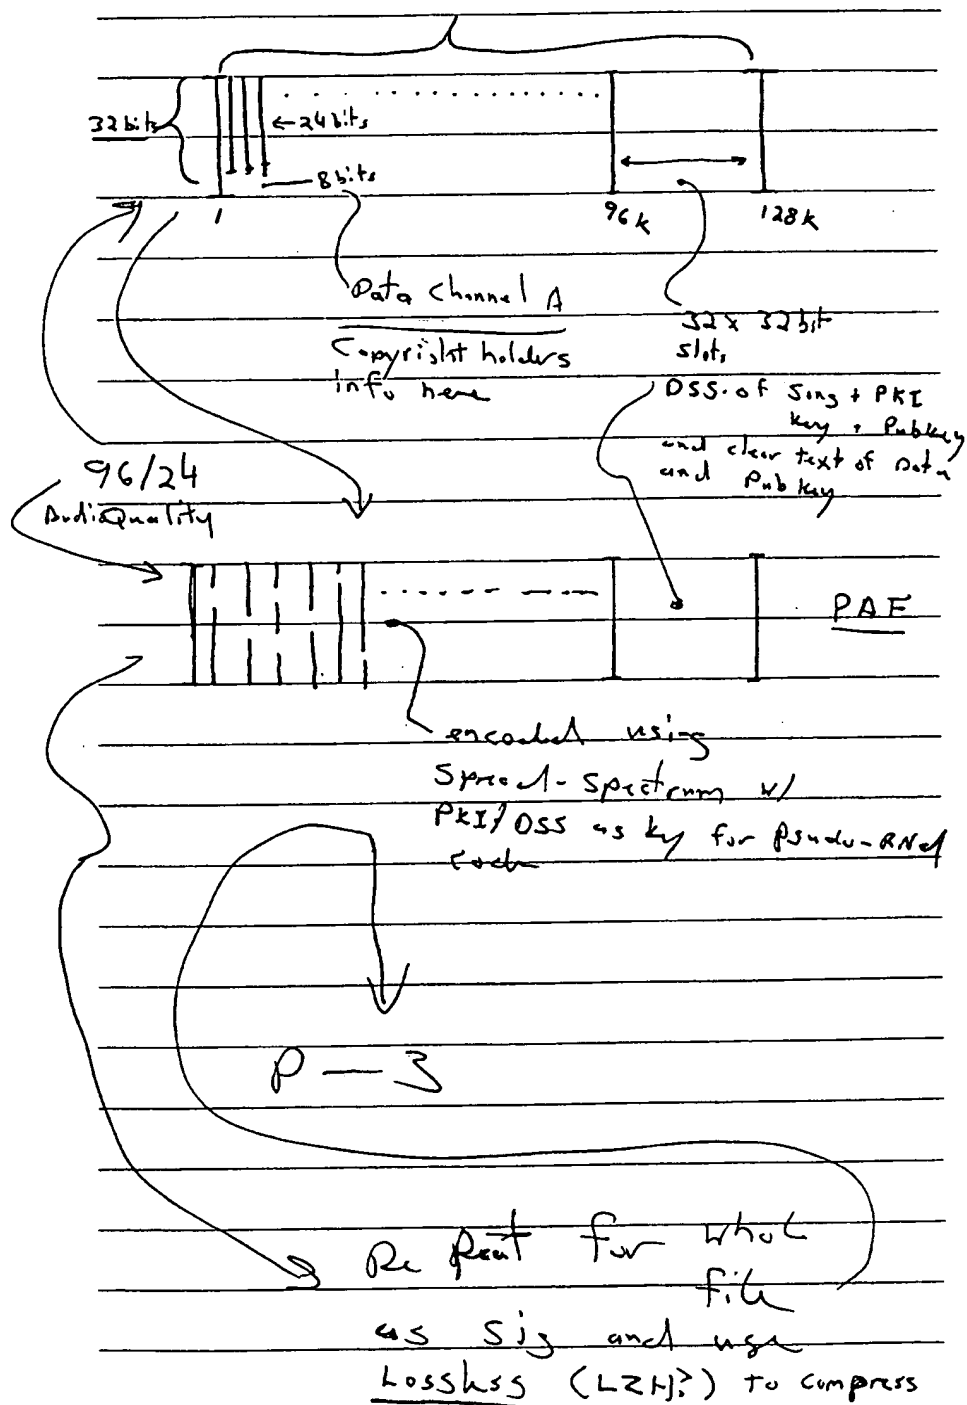 32 bits
←24 bits
8 bits
1
96k
128k
Data Channel A
Copyright holders
info here
32 x 32 bit
slots
DSS of Song + PKI
key + Pubkey
and clear text of Data
and Pub Key
96/24
Audio Quality
PAF
encoded using
Spread-Spectrum w/
PKI/DSS as key for Psudo-RNd
code
P-3
Repeat for whole
file
as Sig and use
Lossless (LZH?) to compress